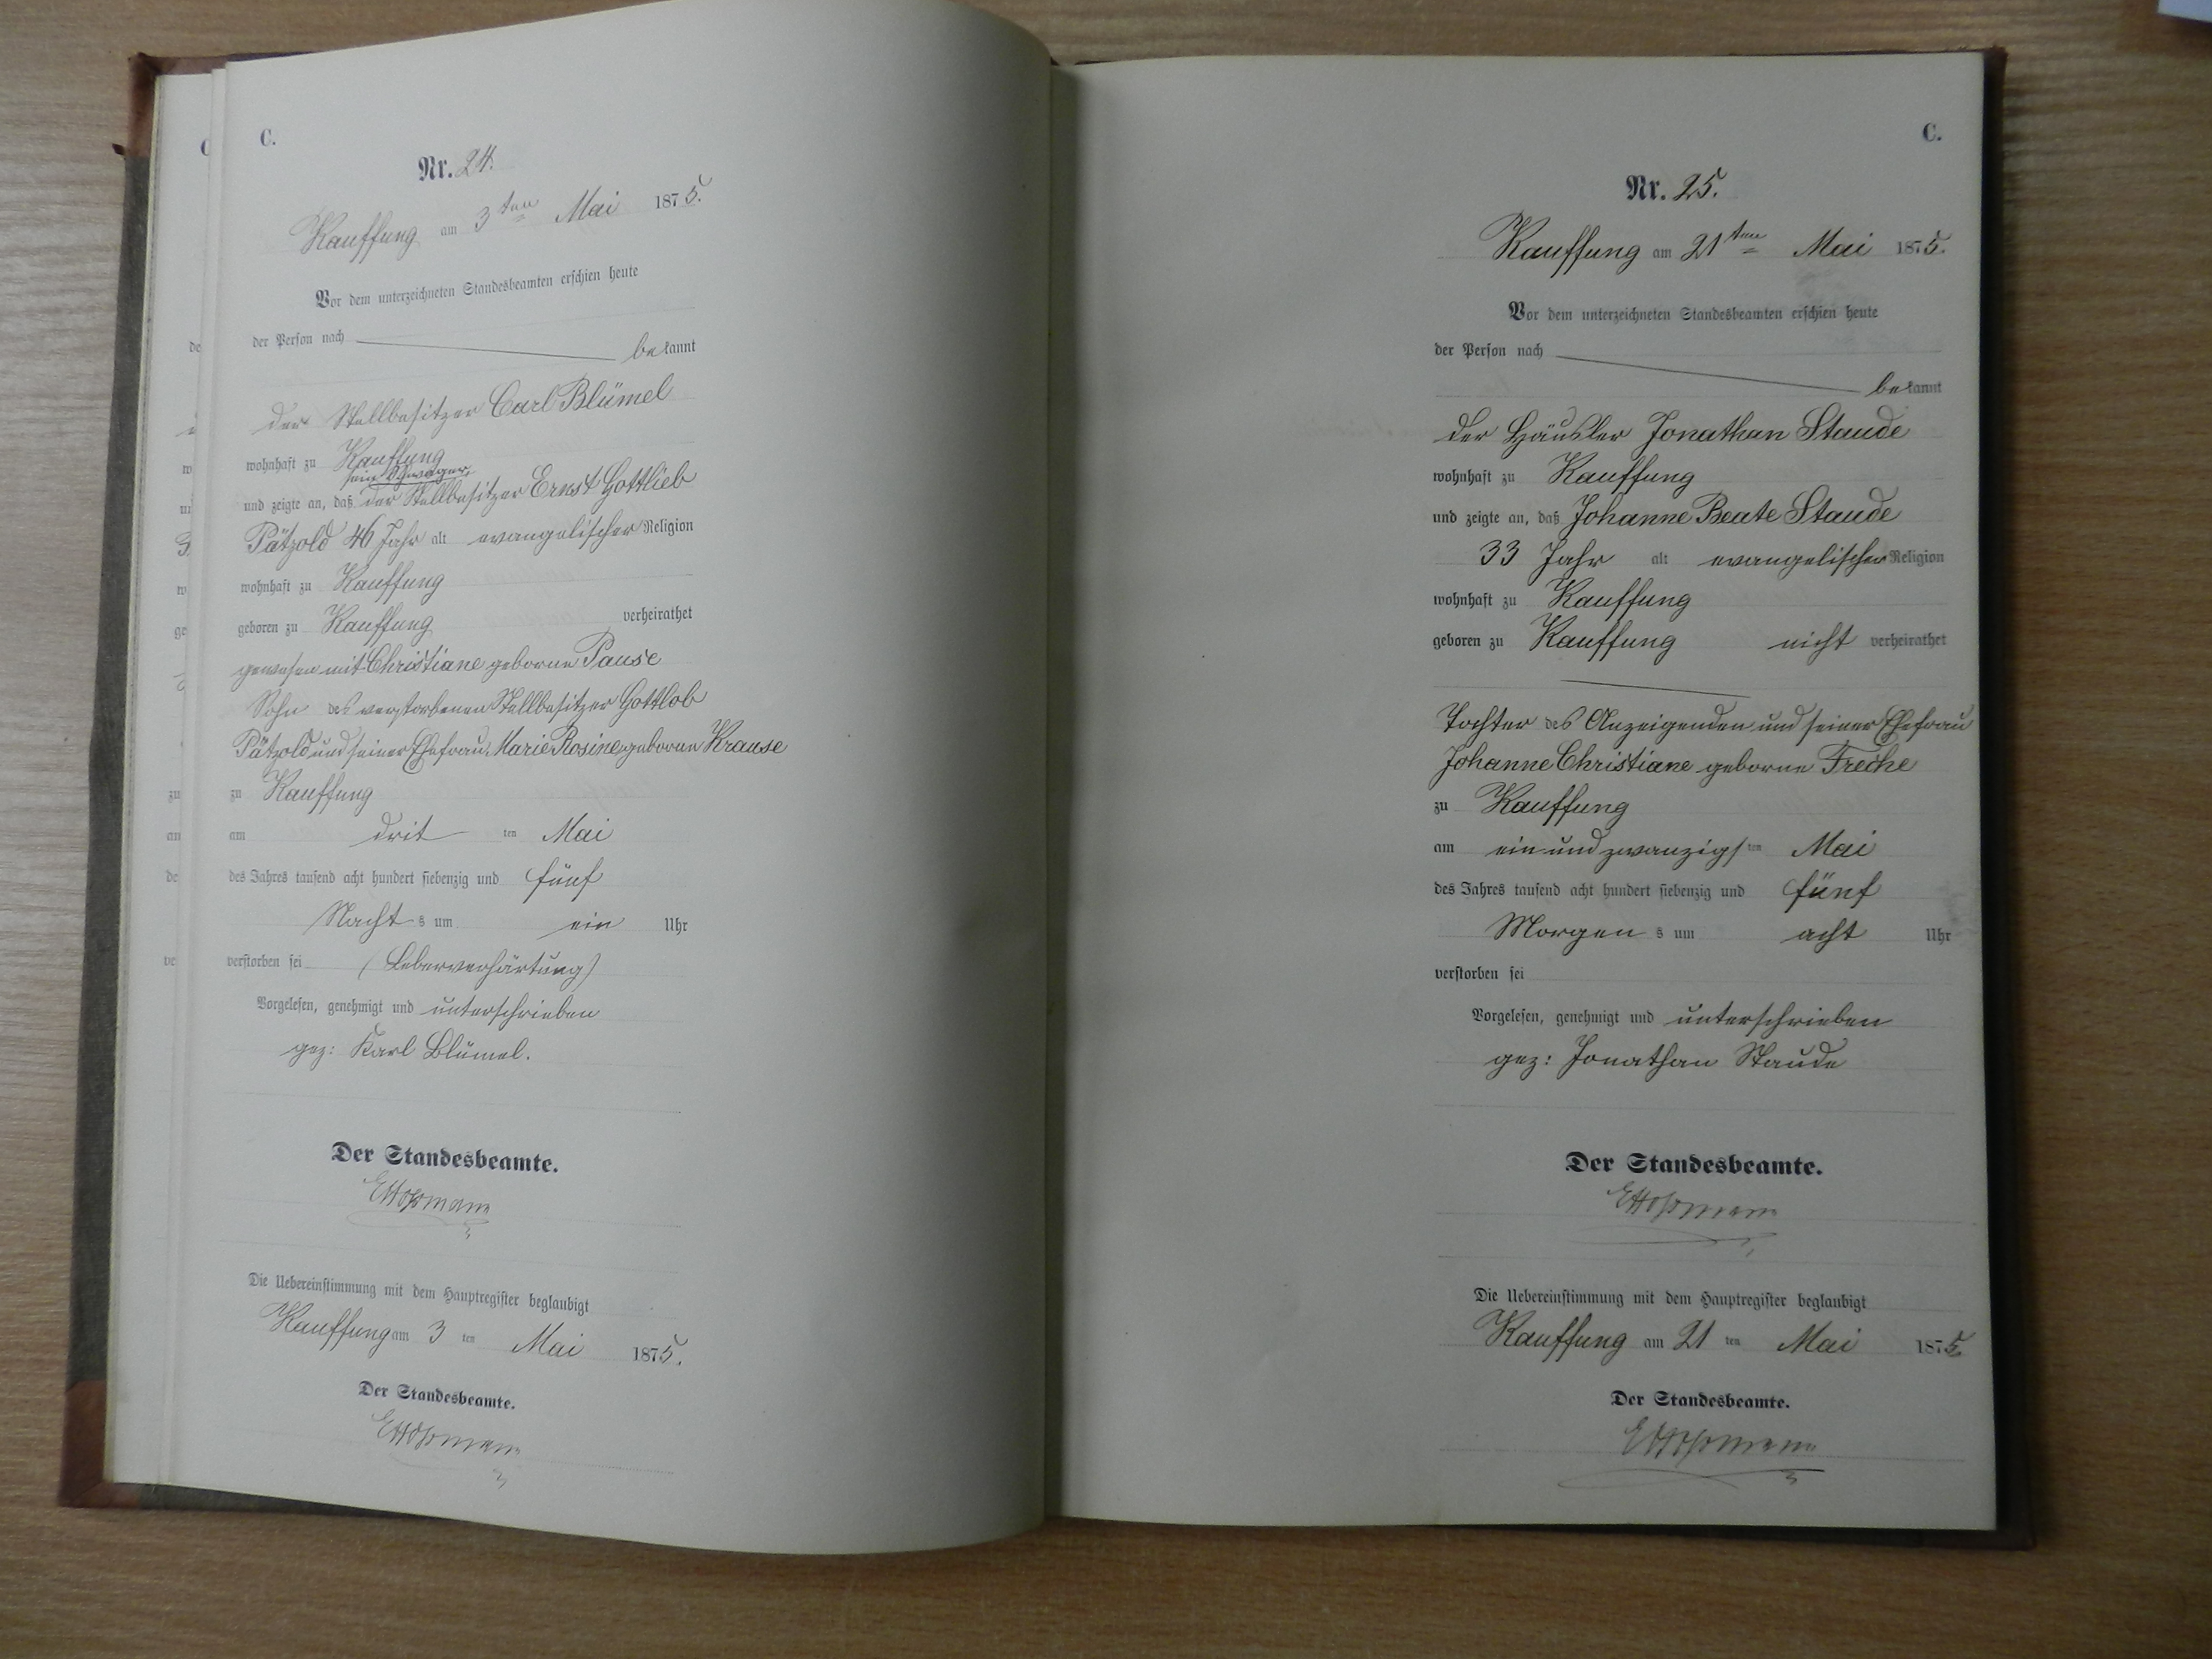 C.
Nr. 24.
Kauffung am 3ten Mai 1875.
Vor dem unterzeichneten Standesbeamten erschien heute
der Person nach
bekannt
der Stellbesitzer Carl Blümel
wohnhaft zu Kauffung
sein Schwager,
und zeigte an, daß der Stellbesitzer Ernst Gottlieb
Pätzold 46 Jahr alt evangelischer Religion
wohnhaft zu Kauffung
geboren zu Kauffung verheirathet
gewesen mit Christiane geborne Pause
Sohn des verstorbenen Stellbesitzer Gottlob
Pätzold und seiner Ehefrau, Marie Rosine geborne Krause
zu Kauffung
am dritten Mai
des Jahres tausend acht hundert siebenzig und fünf
Nachts um ein Uhr
verstorben sei (Leberverhärtung)
Vorgelesen, genehmigt und unterschrieben
gez: Karl Blümel.
Der Standesbeamte.
Die Uebereinstimmung mit dem Hauptregister beglaubigt
Kauffung am 3 ten Mai 1875.
Der Standesbeamte.
C.
Nr. 25.
Kauffung am 21ten Mai 1875.
Vor dem unterzeichneten Standesbeamten erschien heute
der Person nach
bekannt
der Häusler Jonathan Staude
wohnhaft zu Kauffung
und zeigte an, daß Johanne Beate Staude
33 Jahr alt evangelischer Religion
wohnhaft zu Kauffung
geboren zu Kauffung nicht verheirathet
Tochter des Anzeigenden und seiner Ehefrau
Johanne Christiane geborne Freche
zu Kauffung
am ein und zwanzigsten Mai
des Jahres tausend acht hundert siebenzig und fünf
Morgens um acht Uhr
verstorben sei
Vorgelesen, genehmigt und unterschrieben
gez: Jonathan Staude
Der Standesbeamte.
Die Uebereinstimmung mit dem Hauptregister beglaubigt
Kauffung am 21 ten Mai 1875.
Der Standesbeamte.